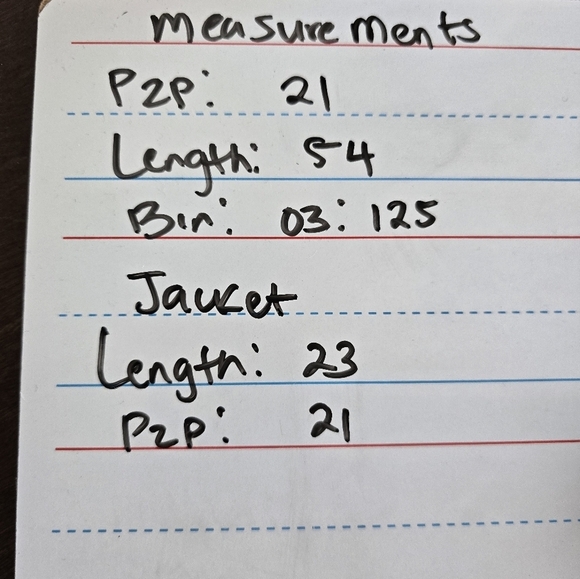 Measurements
P2P: 21
Length: 54
Bin: 03: 125
Jacket
Length: 23
P2P: 21